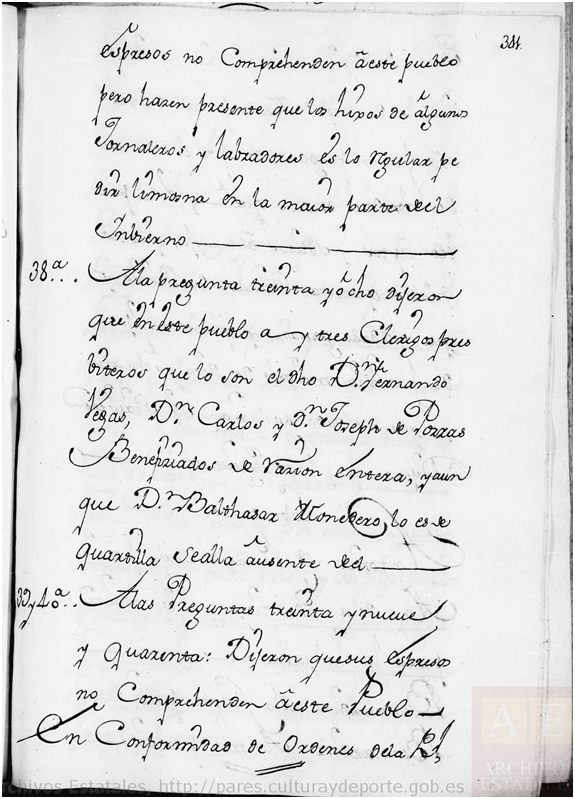 381.
Espresos no Comprehenden â este pueblo
pero hazen presente que los hixos de âlgunos
Jornaleros y labradores es lo regular pe
dir limosna en la maior parte del
Inbierno
38.ª.. A la pregunta treinta y ôcho Dijeron
que en este pueblo a y tres Clerigos pres
biteros que lo son el dho D.n Fernando
Vegas, D.n Carlos y D.n Joseph de Porras
Benefiziados de razion entera, y aun
que D.n Balthasar Monedero lo es de
quartilla se alla âusente del
39 y 40ª.. A las Preguntas treinta y nueve
y quarenta: Dijeron que sus espresos
no Comprehenden â este Pueblo
En Conformidad de Ordenes de la R.l
chivos Estatales, http://pares.culturaydeporte.gob.es
AE
ARCHIVOS
ESTATALES